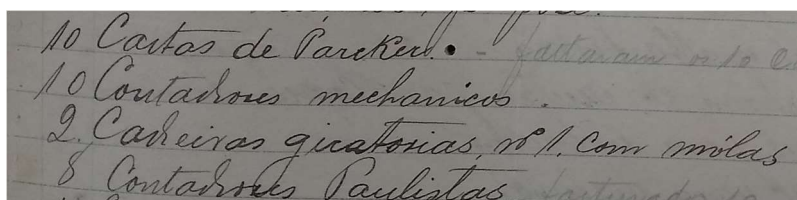 10 Cartas de Parcker. - faltaram os 10
10 Contadores mechanicos.
2. Cadeiras giratorias, nº 1. com mólas
8 Contadores Paulistas